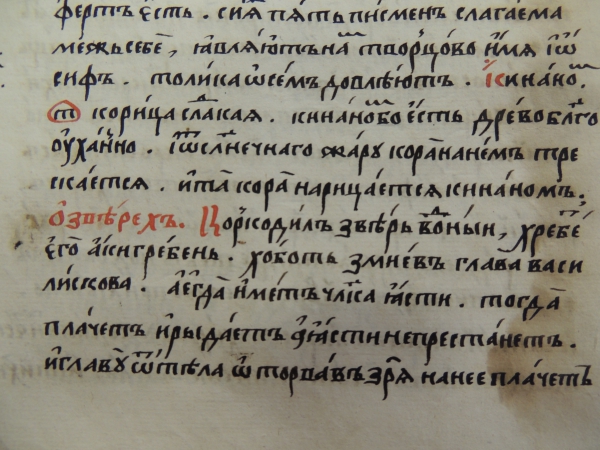 фертъ є҆сть . сїѧ҆ пѧть пи́сменъ слага́ема
межъ себѐ , ꙗ҆влѧ́ютъ на творцо́во и҆́мѧ і҆ѡ́
сифъ . толика ѡ҆ се́мъ довлѣ́ютъ . і҆ кина́но .
т кори́ца сла́кая . кина́но бо є҆́сть дре́во бл҃го
оуха́нно . ѿ сл҃нечнаго жа́ру кора̀ на не́мъ тре
скаетсѧ . и҆ та̀ кора̀ нарица́етсѧ кина́номъ .
О҆ звѣ́рехъ . Цоркоди́лъ звѣ́рь во́ны́и , хребе́
є҆гѡ̀ а҆́ки гре́бень . хо́ботъ змі́евъ глава̀ васи
ли́скова . а҆ є҆гда̀ и҆́метъ чл҃ка ꙗ҆́сти . тогда̀
пла́четъ и҆ рыда́етъ а҆ ꙗ҆́сти не преста́нетъ .
и҆ главꙋ̀ ѿ тѣ́ла ѿторва́въ зрѧ̀ на нее пла́четъ